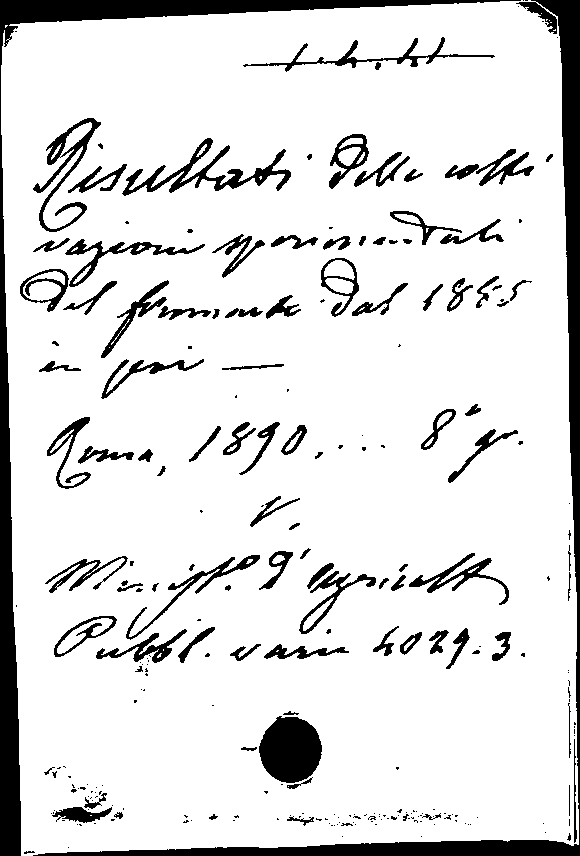 1.4.41
Risultati delle colti
vazioni sperimentali
del frumento dal 1885
in poi —
Roma, 1890, ... 8° gr.
V.
Minist.° d'Agricolt
Pubbl. varie 4029.3.